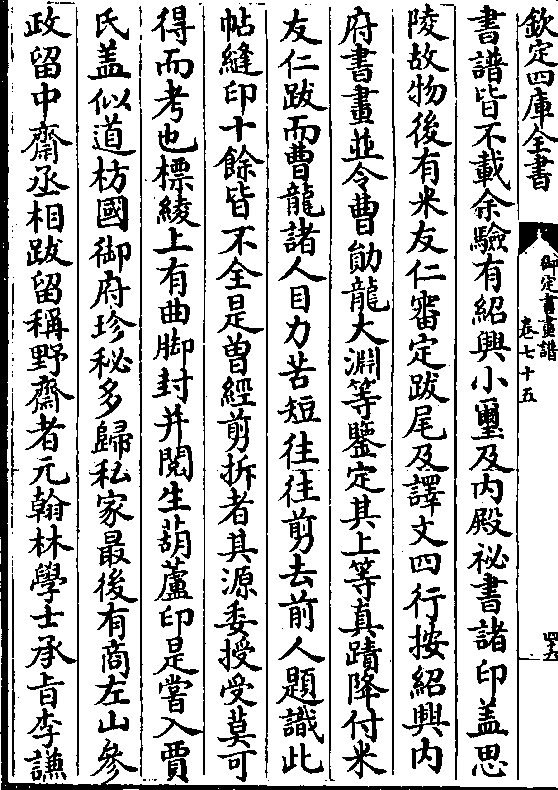 欽定四庫全書
御定書畫譜
卷七十五
四十五
書譜皆不載余驗有紹興小璽及内殿祕書諸印蓋思
陵故物後有米友仁審定跋尾及譯文四行按紹興内
府書畫並令曹勛龍大淵等鑒定其上等真蹟降付米
友仁跋而曹龍諸人目力苦短往往剪去前人題識此
帖縫印十餘皆不全是曾經剪拆者其源委授受莫可
得而考也標綾上有曲脚封并閱生葫蘆印是嘗入賈
氏蓋似道枋國御府珍秘多歸私家最後有商左山參
政留中齋丞相跋留稱野齋者元翰林學士承旨李謙